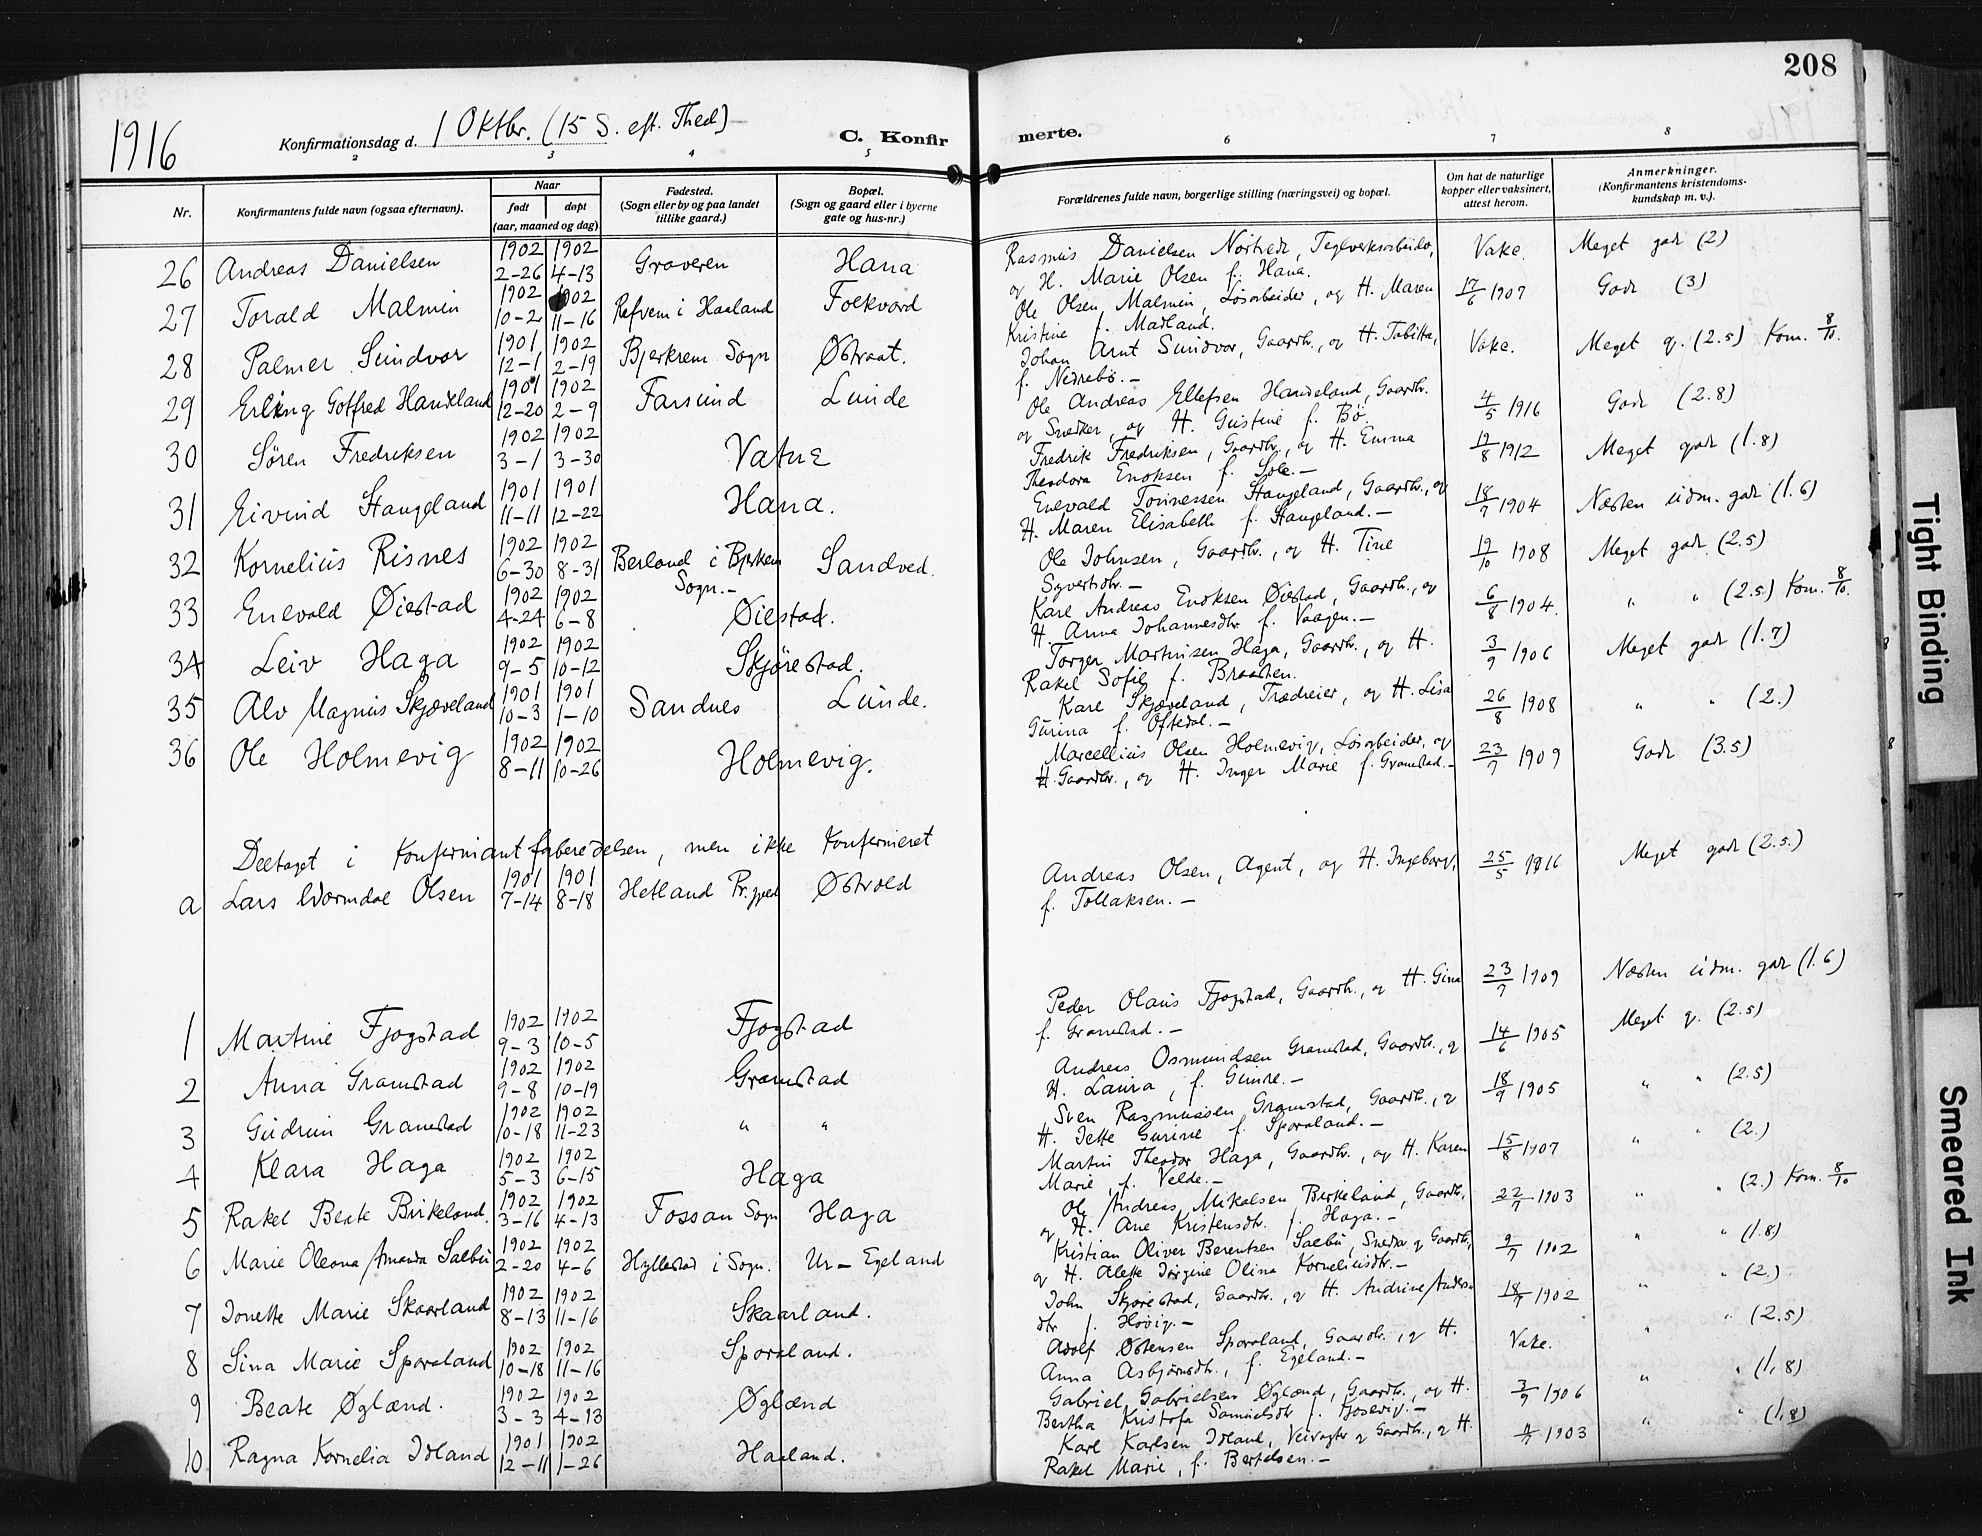 208
1916
Konfirmationsdag d. 1 Oktbr. (15 S. eft. Thed)
C. Konfirmerte.
2 3 4 5 6 7 8
Nr.
Konfirmantens fulde navn (ogsaa efternavn).
Naar
født døpt
(aar, maaned og dag)
Fødested.
(Sogn eller by og paa landet
tillike gaard.)
Bopæl.
(Sogn og gaard eller i byerne
gate og hus-nr.)
Forældrenes fulde navn, borgerlige stilling (næringsvei) og bopæl.
Om hat de naturlige
kopper eller vaksinert,
attest herom.
Anmerkninger.
(Konfirmantens kristendoms-
kundskap m. v.).
26 Andreas Danielsen 1902 2-26 1902 4-13 Graveren Hana
Rasmus Danielsen Nortvedt, Teglverksarbeider,
og H. Marie Olsen f. Hana.
Vake. Meget godt (2)
27 Torald Malmin 1902 10-2 1902 11-16 Refvem i Haaland Folkvord
Ole Olsen Malmin, Løsarbeider, og H. Maren
Kristine f. Madland.
17/6 1907 Godt (3)
28 Palmer Sundvor 1901 12-1 1902 2-19 Bjerkrem Sogn Østraat.
Johan Arnt Sundvor, Gaardb., og H. Tabitta,
f. Nedrebø.-
Vake. Meget g. (2.5) Kom. 8/10.
29 Erling Gotfred Handeland 1901 12-20 1902 2-9 Farsund Lunde
Ole Andreas Ellefsen Handeland, Gaardb.
og Snedker, og H. Gustine f. Bø.
4/5 1916 Godt (2.8)
30 Søren Fredriksen 1902 3-1 1902 3-30 Vatne
Fredrik Fredriksen, Gaardb., og H. Emma
Theodora Enoksen f. Sole.-
19/8 1912 Meget godt (1.8)
31 Eivind Stangeland 1901 11-11 1901 12-22 Hana.
Enevald Tønnessen Stangeland, Gaardb., og
H. Maren Elisabeth f. Stangeland.-
18/7 1904 Næsten udm. godt (1.6)
32 Kornelius Risnes 1902 6-30 1902 8-31 Berland i Bjerkrem Sogn.- Sandved.
Ole Johnsen, Gaardb., og H. Tine
Syvertsdtr.-
19/10 1908 Meget godt (2.5)
33 Enevald Øiestad 1902 4-24 1902 6-8 Øiestad.
Karl Andreas Enoksen Øiestad, Gaardb., og
H. Anna Johannesdtr. f. Vaagen.-
6/8 1904. " " (2.5) Kom. 8/10.
34 Leiv Haga 1902 9-5 1902 10-12 Skjørestad.
Torger Martinsen Haga, Gaardb., og H.
Rakel Sofie f. Braasten.
3/9 1906 Meget godt (1.7)
35 Alv Magnus Skjæveland 1901 10-3 1901 1-10 Sandnes Lunde.
Karl Skjæveland, Trædreier, og H. Lisa
Gurina f. Oftedal.-
26/8 1908 " " (2.)
36 Ole Holmevig 1902 8-11 1902 10-26 Holmevig.
Marcellius Olsen Holmevig, Løsarbeider, og
H. Gaardbr., og H. Inger Marie f. Gramstad.-
23/7 1909 Godt (3.5)
Deltaget i Konfirmantforberedelsen, men ikke Konfirmeret
a Lars Wormdal Olsen 1901 7-14 1901 8-18 Hetland Pr.gjeld Østvold
Andreas Olsen, Agent, og H. Ingeborg,
f. Tollaksen.-
25/5 1916 Meget godt (2.5.)
1 Martine Fjogstad 1902 9-3 1902 10-5 Fjogstad
Peder Olaus Fjogstad, Gaardb., og H. Gina
f. Gramstad.-
23/7 1909 Næsten udm. godt (1.6)
2 Anna Gramstad 1902 9-8 1902 10-19 Gramstad
Andreas Osmundsen Gramstad, Gaardb., og
H. Laura, f. Gimre.-
14/6 1905 Meget g. (2.5)
3 Gudrun Gramstad 1902 10-18 1902 11-23 " "
Sven Rasmussen Gramstad, Gaardb., og
H. Jette Gurine f. Sporaland.-
18/9 1905 " " (2.5)
4 Klara Haga 1902 5-3 1902 6-15 Haga
Martin Theodor Haga, Gaardb., og H. Karen
Marie, f. Velde.-
15/8 1907 " " (2.)
5 Rakel Beate Birkeland. 1902 3-16 1902 4-13 Fossan Sogn Haga
Ole Andreas Mikalsen Birkeland, Gaardb.
og H. Ane Kristensdtr. f. Haga.-
22/7 1903 " " (2.) Kom. 8/10
6 Marie Oleana Amanda Salbu 1902 2-20 1902 4-6 Hyllestad i Sogn. Ur-Egeland
Kristian Oliver Berentsen Salbu, Snedker og Gaardb.,
og H. Alette Jørgine Olina Korneliusdtr.-
9/7 1902 " " (1.8)
7 Jonette Marie Skaarland 1902 8-13 1902 11-16 Skaarland.
John Skjørestad, Gaardb., og H. Andrine Anders
dtr f. Høvig.-
18/7 1902 " " (2.)
8 Sina Marie Sporaland 1902 10-18 1902 11-16 Sporaland.
Adolf Østensen Sporaland, Gaardb., og H.
Anna Asbjørnsdtr., f. Egeland.-
Vake. " " (2.5)
9 Beate Øglænd. 1902 3-3 1902 4-13 Øglænd
Gabriel Gabrielsen Øglænd, Gaardb., og H.
Bertha Kristofa Samuelsdtr f. Fjosevig.-
3/9 1906 " " (1,8)
10 Ragna Kornelia Idland 1901 12-11 1902 1-26 Haaland.
Karl Karlsen Idland, Veivogter og Gaardb., og H.
Rakel Marie, f. Bertelsen.-
1903 " " (1,8)
Tight Binding
Smeared Ink